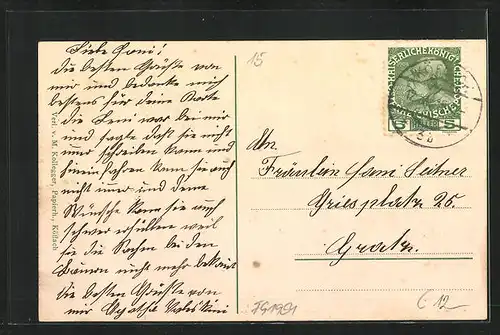 Liebe Fani!
die besten Grüße von
mir und bedanke mich
bestens für deine Karte
die Leni war bei mir
und sagte daß sie nicht
schreiben kann und
fahren kann sie auch
nicht und deine
Wünsche kann sie auch
schwer erfüllen weil
sie die Sachen bei den
Bauern nicht mehr bekomt
die besten Grüße von
mir Agathe
Verl. v. M. Kollegger, Papierh., Köflach
15
KAISERLICHE KÖNIGL
ÖSTERREICHISCHE POST
5
An
Fräulein Fani Leitner
Griesplatz 25.
Gratz.
FG1991
€ 12